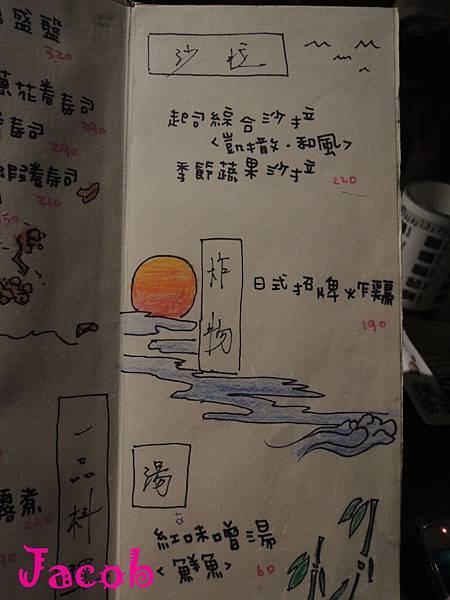 盛盤
320
花卷壽司
290
壽司
290
卷壽司
210
一品料理
煮
220
沙拉
起司綜合沙拉
<凱撒·和風>
季節蔬果沙拉
220
炸物
日式招牌炸鷄
190
湯
紅味噌湯
<鮮魚>
60
Jacob